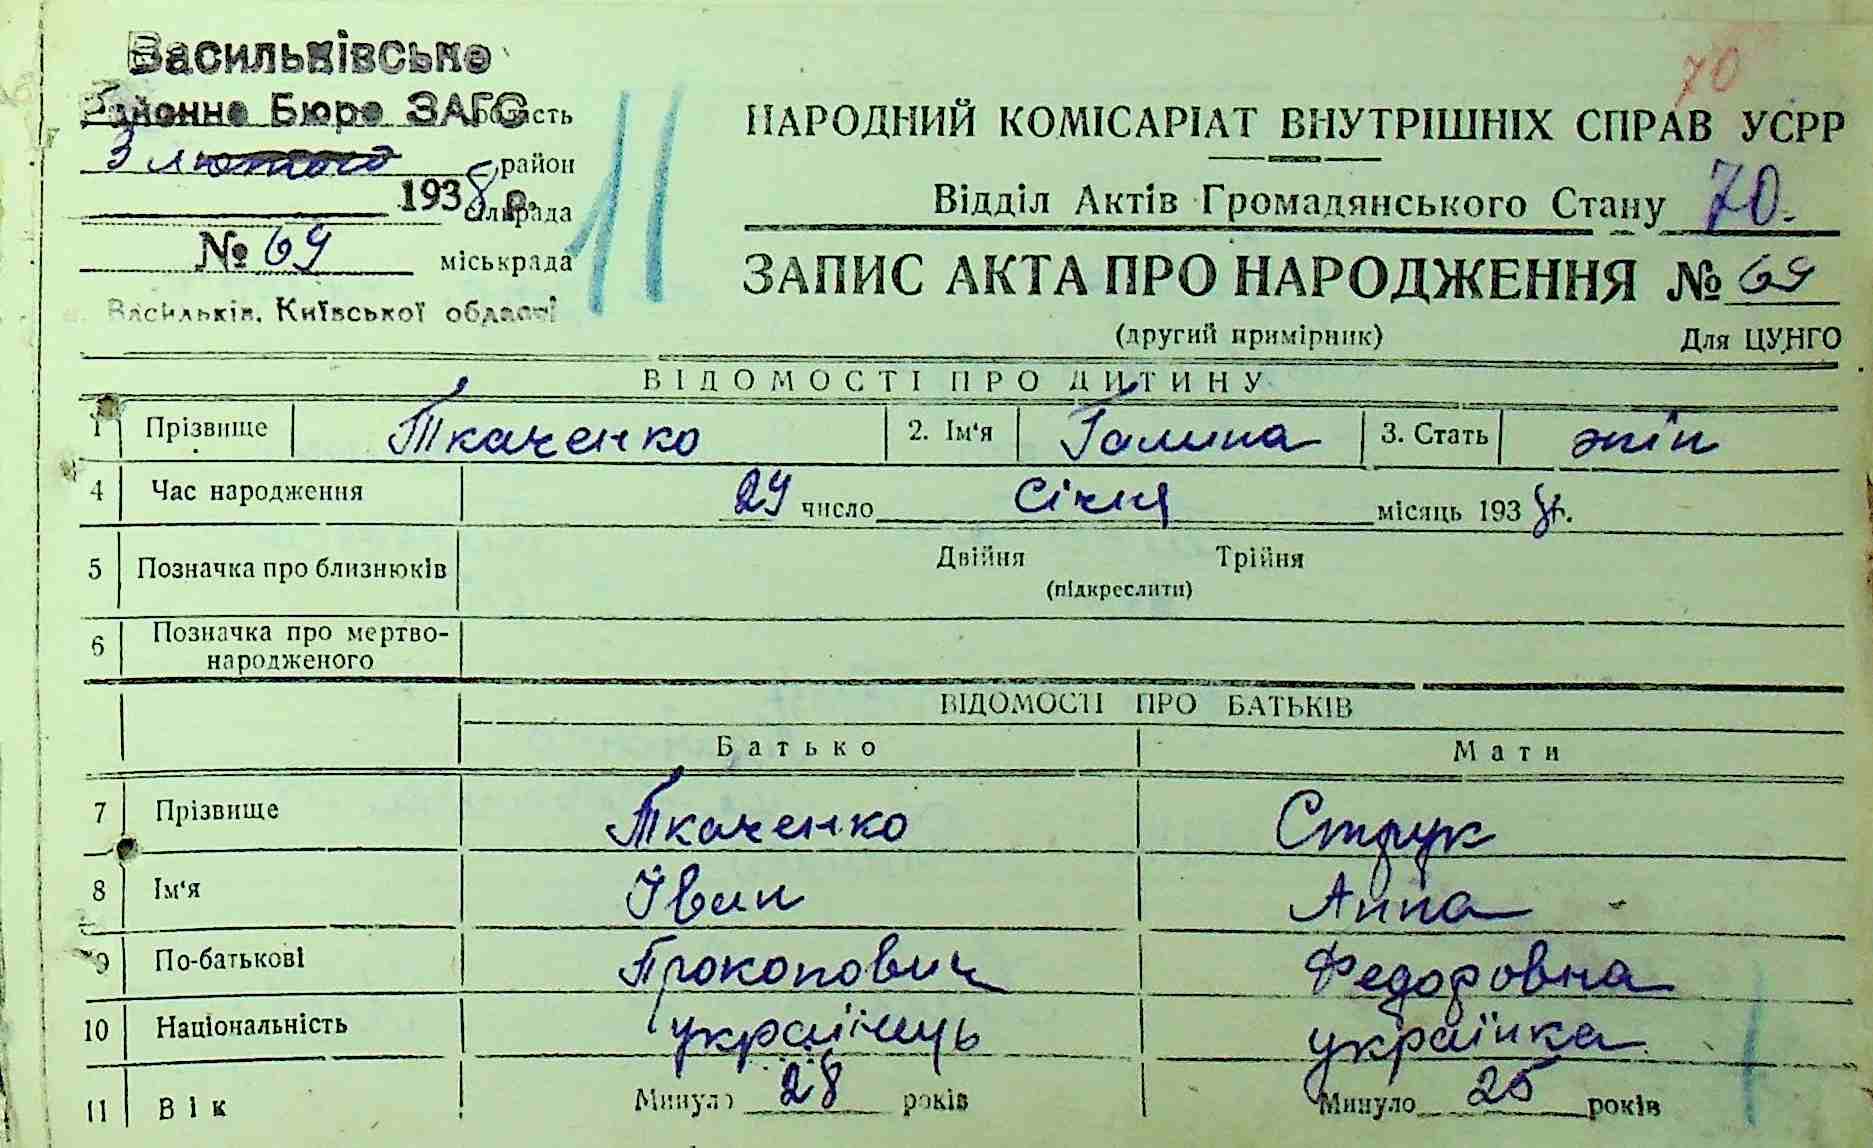 Васильківське
Районне Бюро ЗАГС область
3 лютого район
1938 р. сільрада
№ 69 міськрада
м. Васильків, Київської області
11
70
НАРОДНИЙ КОМІСАРІАТ ВНУТРІШНІХ СПРАВ УСРР
Відділ Актів Громадянського Стану 70.
ЗАПИС АКТА ПРО НАРОДЖЕННЯ № 69
(другий примірник) Для ЦУНГО
ВІДОМОСТІ ПРО ДИТИНУ
1 Прізвище Ткаченко 2. Ім'я Галина 3. Стать жін
4 Час народження 29 число Січня місяць 1938 р.
5 Позначка про близнюків Двійня Трійня
(підкреслити)
6 Позначка про мертво-
народженого
ВІДОМОСТІ ПРО БАТЬКІВ
Батько Мати
7 Прізвище Ткаченко Струк
8 Ім'я Іван Анна
9 По-батькові Прокопович Федоровна
10 Національність українець українка
11 Вік Минуло 28 років Минуло 25 років